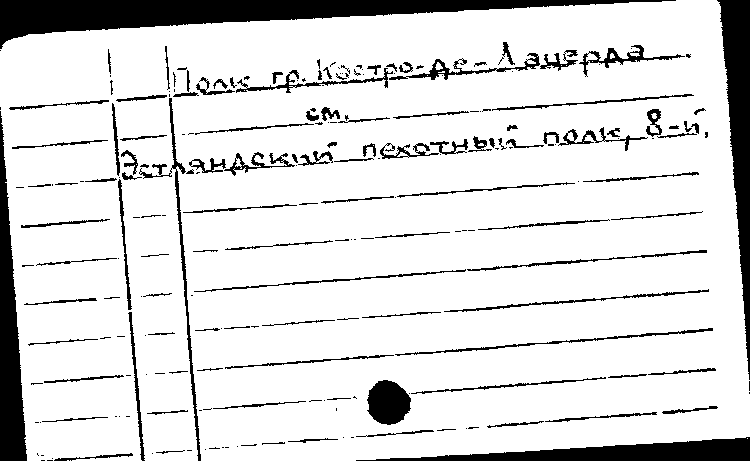 Полк гр. Костро-де-Лацерда
см.
Эстляндский пехотный полк, 8-й.